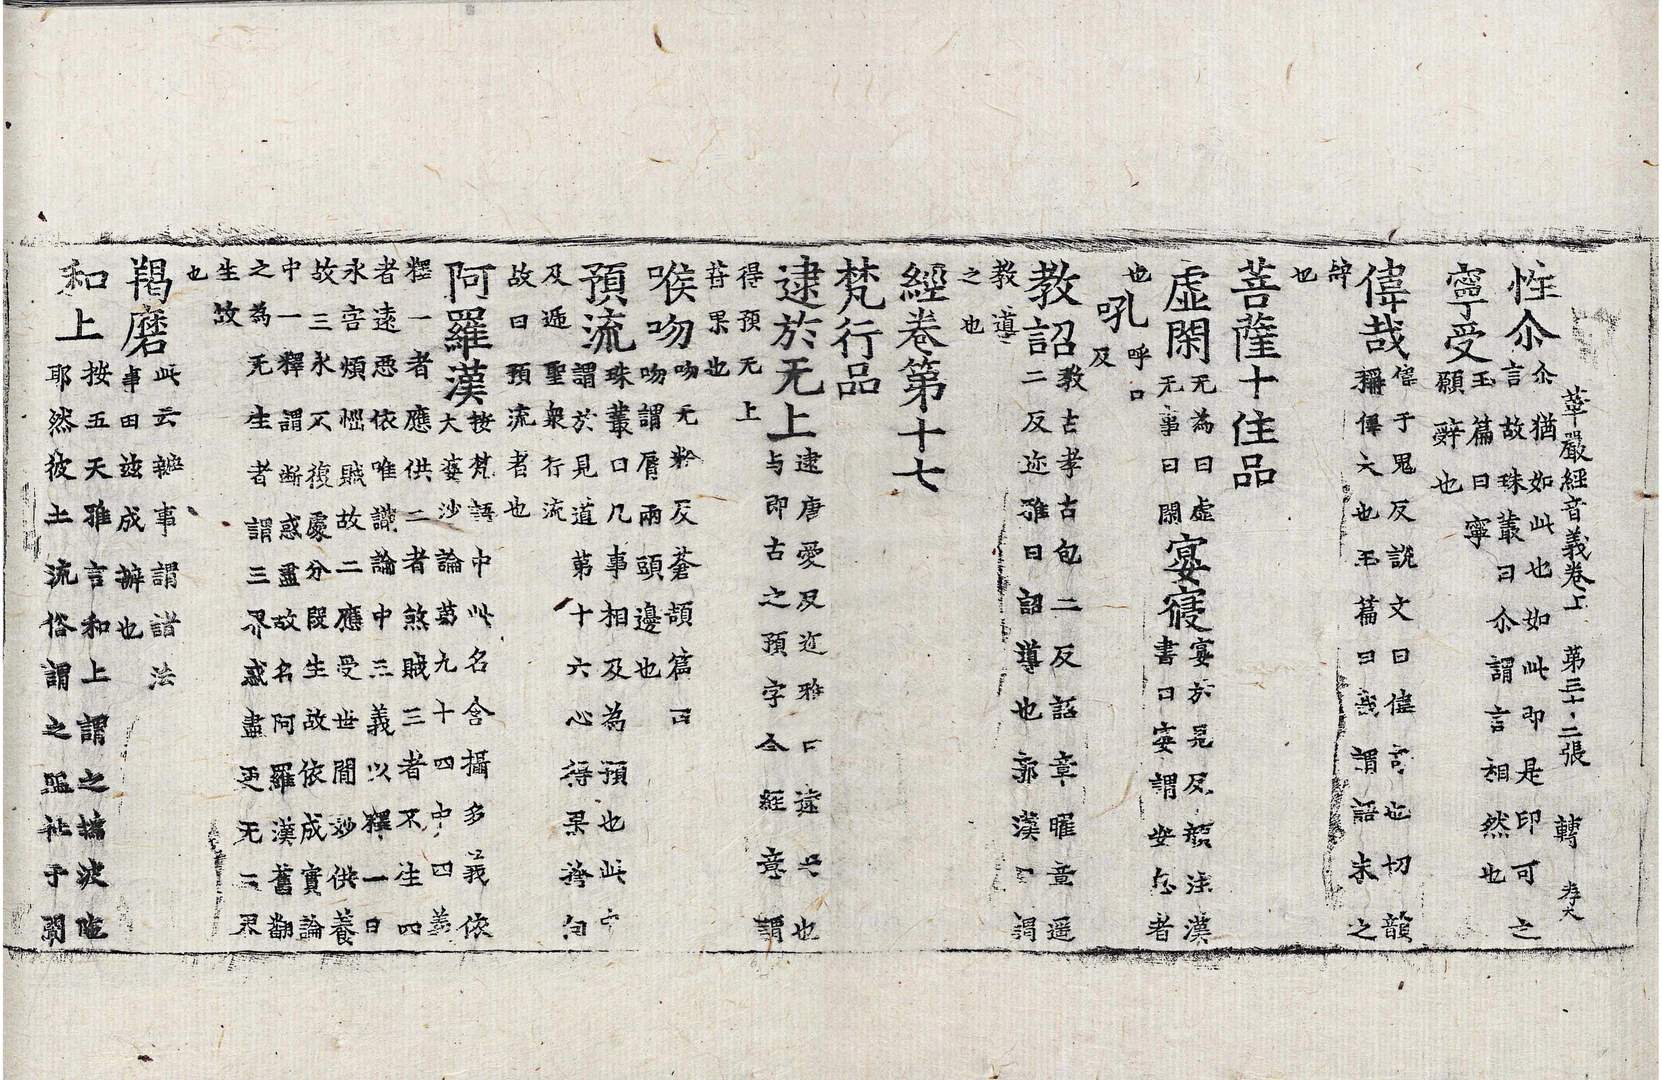 華嚴經音義卷上 第三十二張 轉 存大
性尒 尒猶如此也如此即是印可之
言故珠叢曰尒謂言相然也
寧受 玉篇曰寧
願辭也
偉哉 偉于鬼反說文曰偉奇也切韻
稱偉大也玉篇曰哉謂語末之
辞
也
菩薩十住品
虛閑 无為曰虛
无事曰閑
宴寝 宴於見反顔注漢
書曰宴謂安息者
也
吼 呼口
反
教詔 教古孝古包二反詔章曜章遥
二反迩雅曰詔導也郭漢曰謂
教導
之也
經卷第十七
梵行品
逮於无上 逮唐愛反迩雅曰逮与也
与即古之預字今經意謂
得預无上
菩果也
喉吻 吻无粉反蒼頡篇曰
吻謂脣兩頭邊也
預流 珠叢曰凡事相及為預也此
謂於見道第十六心得果
及遁聖衆行流
故曰預流者也
阿羅漢 按梵語中此名含攝多義依
大婆沙論第九十四中四義
釋一者應供二者煞賊三者不生四
者遠惡依唯識論中三義以釋一曰
永害煩惱賊故二應受世間妙供養
故三永不復處分段生故依成實論
中一釋謂断惑盡故名阿羅漢舊翻
之為无生者謂三界惑盡更无三界
生故
也
羯磨 此云辦事謂諸法
事由兹成辦也
和上 按五天雅言和上謂之塢波陁
耶然彼土流俗謂之殟社于闐